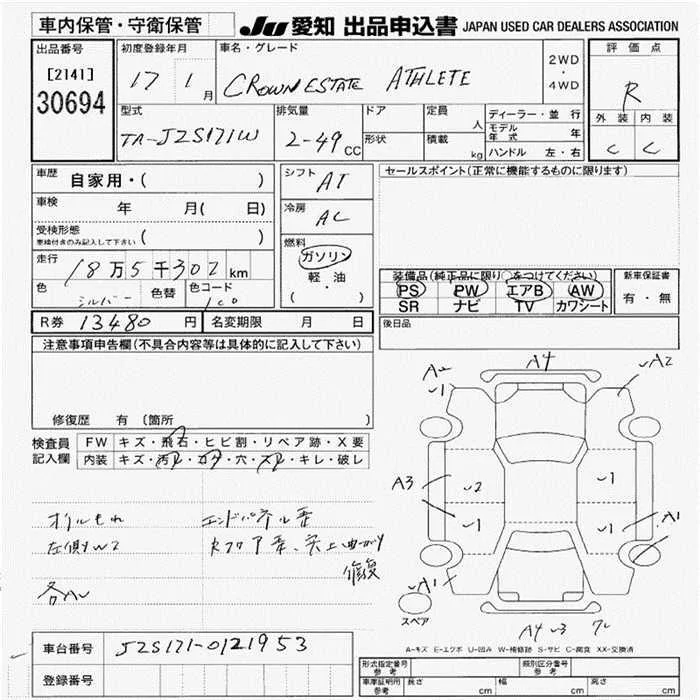 車内保管・守衛保管
JU 愛知 出品申込書 JAPAN USED CAR DEALERS ASSOCIATION
出品番号
[2141]
30694
初度登録年月
17 1 月
車名・グレード
CROWN ESTATE ATHLETE
2WD
・
4WD
評価点
R
外装 内装
C C
型式
TA-JZS171W
排気量
2-49 CC
ドア
形状
定員 人
積載 kg
ディーラー・並行
モデル年式 年
ハンドル 左・右
車歴 自家用・( )
車検 年 月( 日)
受検形態
車検付きのみ記入して下さい ( )
走行 18万5千302 km
色 シルバー 色替 色コード 1C0
シフト AT
冷房 AC
燃料
ガソリン
軽・油
( ・ )
セールスポイント(正常に機能するものに限ります)
装備品(純正品に限り○をつけてください)
PS PW エアB AW
SR ナビ TV カワシート
新車保証書
有・無
R券 13480 円 名変期限 月 日
後日品
注意事項申告欄(不具合内容等は具体的に記入して下さい)
修復歴 有 〔箇所 〕
検査員記入欄
FW キズ・飛石・ヒビ割・リペア跡・X要
内装 キズ・汚れ・コゲ・穴・スレ・キレ・破レ
オイルもれ
左側W2
エンドパネル歪
修復
A4
A2
A2
1
A3
2
1
1
1
A1
A1
スペア
A4 3
A-キズ E-エクボ U-凹み W-補修跡 S-サビ C-腐食 XX-交換済
車台番号 JZS171-0121953
登録番号
形式指定番号 参考
類別区分番号 参考
車庫証明用 参考 長さ cm 幅 cm 高さ cm